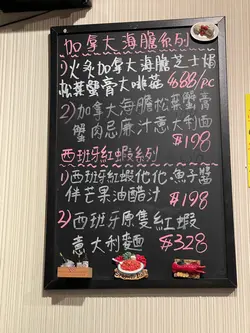 加拿大海膽系列
1)火炙加拿大海膽芝士焗
松葉蟹膏大啡菇 $88/pc
2)加拿大海膽松葉蟹膏
蟹肉忌廉汁意大利面
$198
西班牙紅蝦系列
1)西班牙紅蝦他他·魚子醬
伴芒果油醋汁 $198
2)西班牙原隻紅蝦
意大利麵 $328